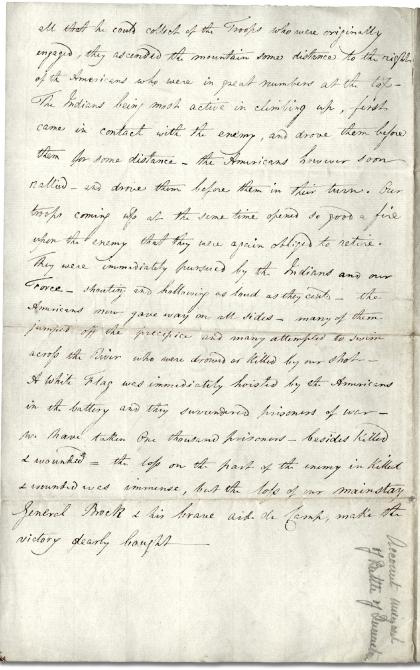 all that he could collect of the Troops who were originally
engaged, they ascended the mountain some distance to the right
of the Americans who were in great numbers at the top –
The Indians being most active in climbing up, first
came in contact with the enemy, and drove them before
them for some distance – the Americans however soon
rallied – and drove them before them in their turn. Our
troops coming up at the same time opened so good a fire
upon the enemy that they were again obliged to retire.
They were immediately pursued by the Indians and our
Force – shouting and hollowing as loud as they could – the
Americans now gave way on all sides – many of them
jumped off the precipice and many attempted to swim
across the River who were drowned or killed by our shot –
A White Flag was immediately hoisted by the Americans
in the battery and they surrendered prisoners of war –
we have taken One thousand prisoners – besides killed
& wounded = the loss on the part of the enemy in killed
& wounded was immense, but the loss of our mainstay
General Brock & his brave aid de Camp, make the
victory dearly bought
Account
of Battle of